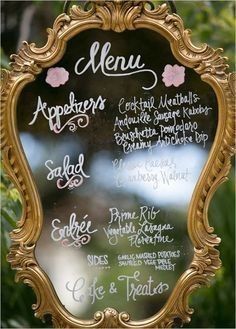 Menu
Appetizers
Cocktail Meatballs
Andouille Sausage Kabobs
Bruschetta Pomodoro
Creamy Artichoke Dip
Salad
Classic Caesar
Cranberry Walnut
Entrée
Prime Rib
Vegetable Lasagna
Florentine
SIDES
GARLIC MASHED POTATOES
VEGETABLE
MEDLEY
Cake & Treats